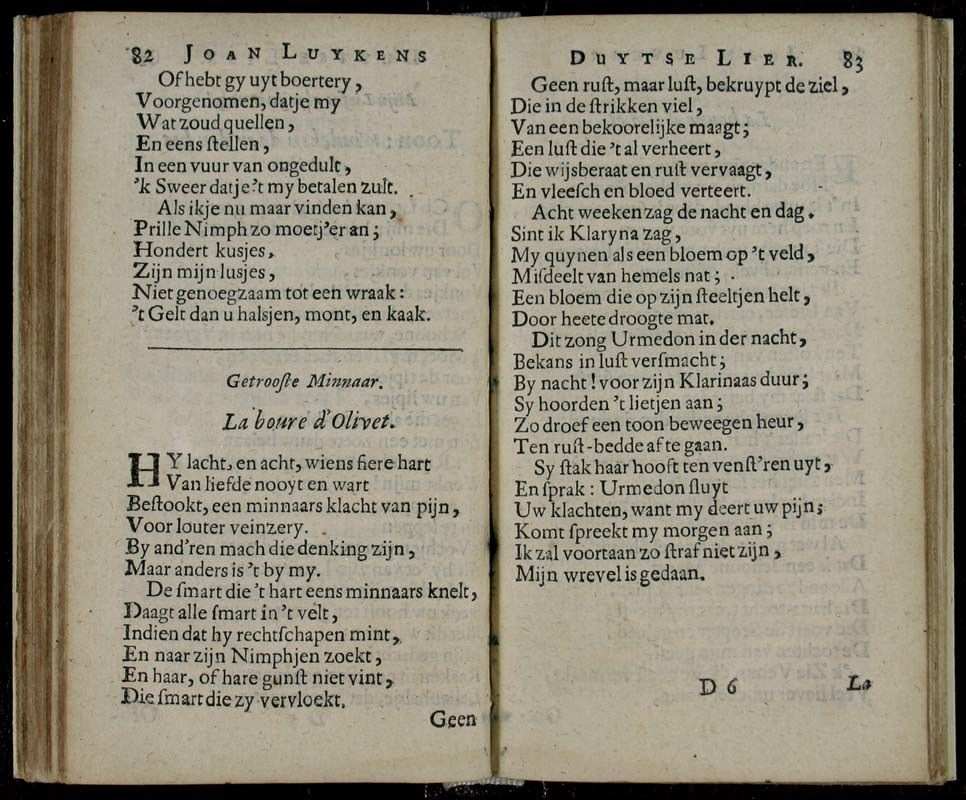 82 JOAN LUYKENS
Of hebt gy uyt boertery,
Voorgenomen, datje my
Wat zoud quellen,
En eens ſtellen,
In een vuur van ongedult,
'k Sweer datje 't my betalen zult.
Als ikje nu maar vinden kan,
Prille Nimph zo moetj'er an;
Hondert kusjes,
Zijn mijn lusjes,
Niet genoegzaam tot een wraak:
't Gelt dan u halsjen, mont, en kaak.
Getrooſte Minnaar.
La boure d'Olivet.
HY lacht, en acht, wiens fiere hart
Van liefde nooyt en wart
Beſtookt, een minnaars klacht van pijn,
Voor louter veinzery.
By and'ren mach die denking zijn,
Maar anders is 't by my.
De ſmart die 't hart eens minnaars knelt,
Daagt alle ſmart in 't velt,
Indien dat hy rechtſchapen mint,
En naar zijn Nimphjen zoekt,
En haar, of hare gunſt niet vint,
Die ſmart die zy vervloekt.
Geen
DUYTSE LIER. 83
Geen ruſt, maar luſt, bekruypt de ziel,
Die in de ſtrikken viel,
Van een bekoorelijke maagt;
Een luſt die 't al verheert,
Die wijsberaat en ruſt vervaagt,
En vleeſch en bloed verteert.
Acht weeken zag de nacht en dag.
Sint ik Klaryna zag,
My quynen als een bloem op 't veld,
Miſdeelt van hemels nat;
Een bloem die op zijn ſteeltjen helt,
Door heete droogte mat.
Dit zong Urmedon in der nacht,
Bekans in luſt verſmacht;
By nacht! voor zijn Klarinaas duur;
Sy hoorden 't lietjen aan;
Zo droef een toon beweegen heur,
Ten ruſt-bedde af te gaan.
Sy ſtak haar hooft ten venſt'ren uyt,
En ſprak: Urmedon ſluyt
Uw klachten, want my deert uw pijn;
Komt ſpreekt my morgen aan;
Ik zal voortaan zo ſtraf niet zijn,
Mijn wrevel is gedaan.
D 6 La